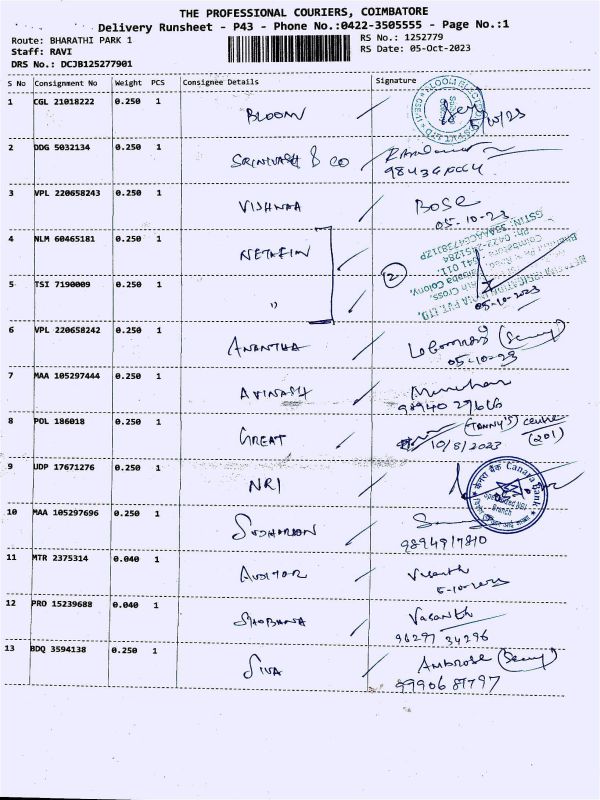 THE PROFESSIONAL COURIERS, COIMBATORE
Delivery Runsheet - P43 - Phone No.:0422-3505555 - Page No.:1
Route: BHARATHI PARK 1
RS No.: 1252779
Staff: RAVI
RS Date: 05-Oct-2023
DRS No.: DCJB125277901
S No Consignment No Weight PCS Consignee Details Signature
1 CGL 21018222 0.250 1 BLOOM
5/10/23
2 DDG 5032134 0.250 1 SRINIVASH & CO
3 VPL 220658243 0.250 1 VISHNAA BOSE
05-10-23
4 NLM 60465181 0.250 1 NETAFIM
2
5 TSI 7190009 0.250 1 "
05-10-2023
6 VPL 220658242 0.250 1 ANANTHA
05-10-23
7 MAA 105297444 0.250 1 AVINASH
98940 29666
8 POL 186018 0.250 1 GREAT
10/8/2023 (201)
9 UDP 17671276 0.250 1 NRI
केनरा बैंक Canara Bank
Branch
10 MAA 105297696 0.250 1
9894917810
11 MTR 2375314 0.040 1 AUDITOR Vasanth
5-10-2023
12 PRO 15239688 0.040 1 SHOBANA Vasanth
96297 34296
13 BDQ 3594138 0.250 1 SIVA AMBROSE
9990681797